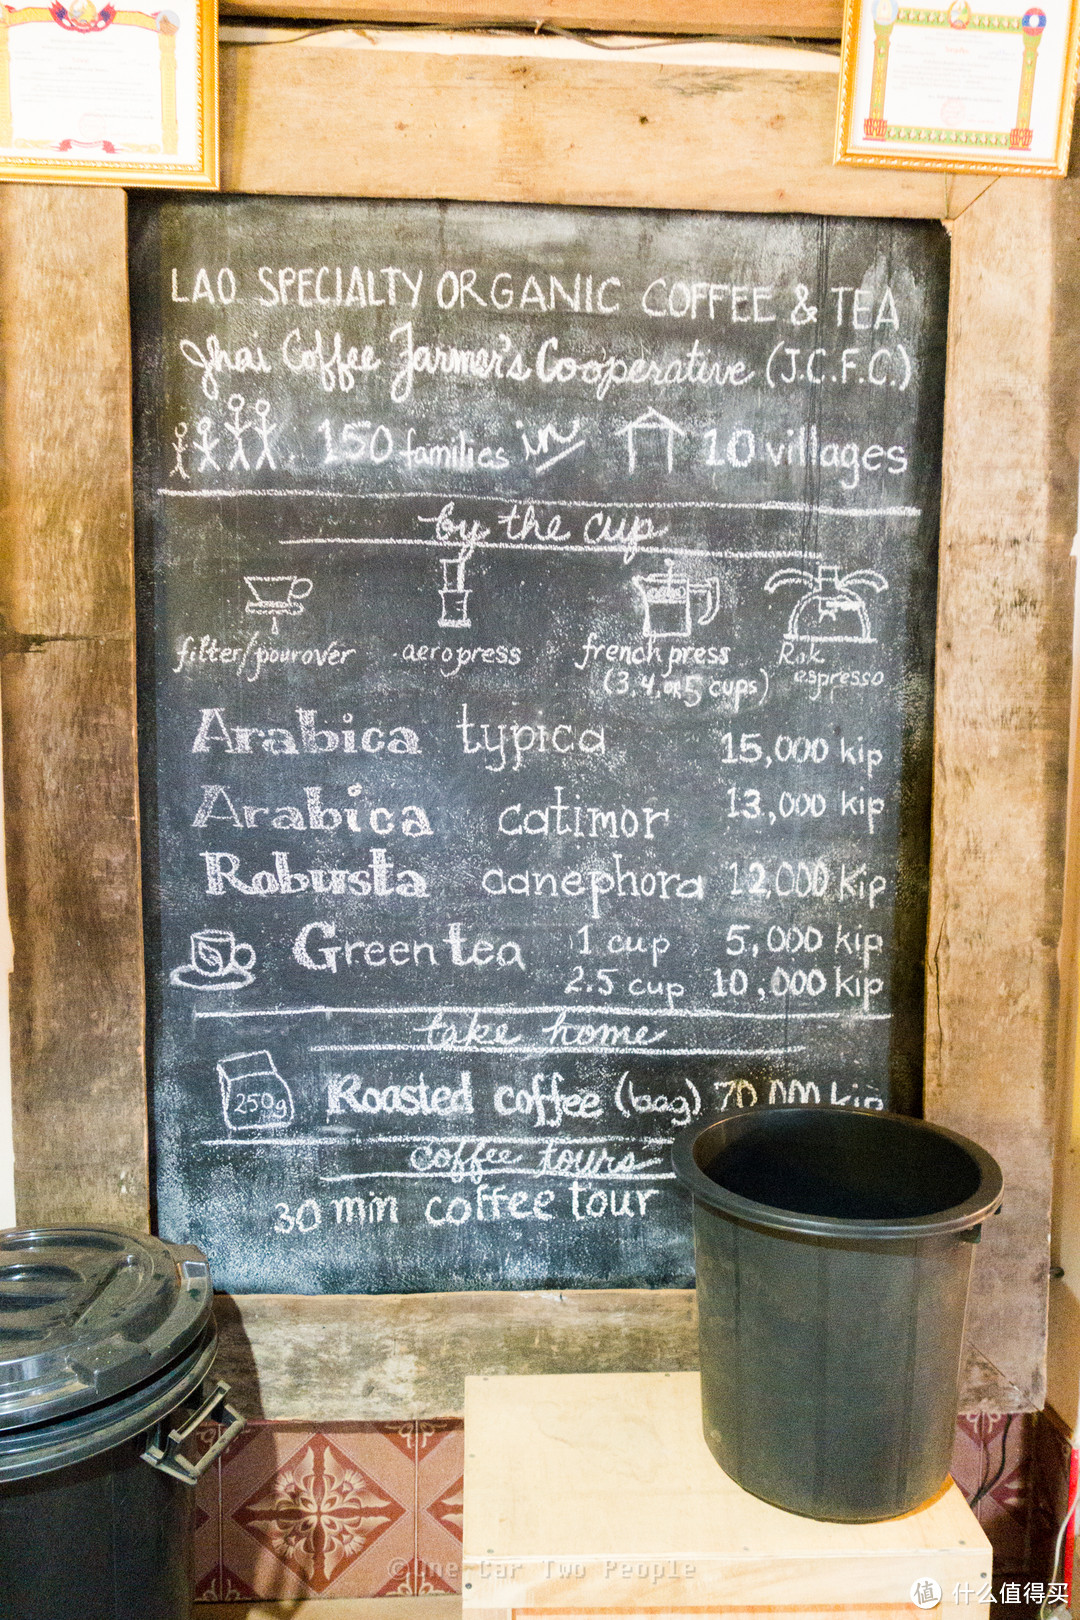 LAO SPECIALTY ORGANIC COFFEE & TEA
Jhai Coffee Farmer's Cooperative (J.C.F.C.)
150 families in 10 villages
by the cup
filter/pourover aeropress french press (3,4, or 5 cups) Rok espresso
Arabica typica 15,000 kip
Arabica catimor 13,000 kip
Robusta canephora 12,000 kip
Green tea 1 cup 5,000 kip
2.5 cup 10,000 kip
take home
250g Roasted coffee (bag) 70,000 kip
coffee tours
30 min coffee tour
©One Car Two People
值 什么值得买